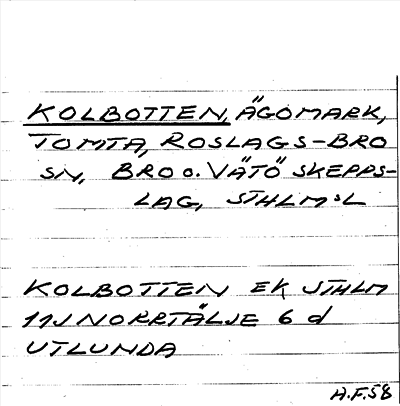 KOLBOTTEN, ÄGOMARK,
TOMTA, ROSLAGS-BRO
SN, BRO O. VÄTÖ SKEPPS-
LAG, STHLM:L
KOLBOTTEN EK STHLM
11J NORRTÄLJE 6 d
UTLUNDA
H.F.58